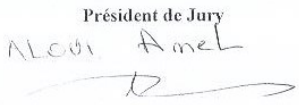 Président de Jury
ALOUI Amel